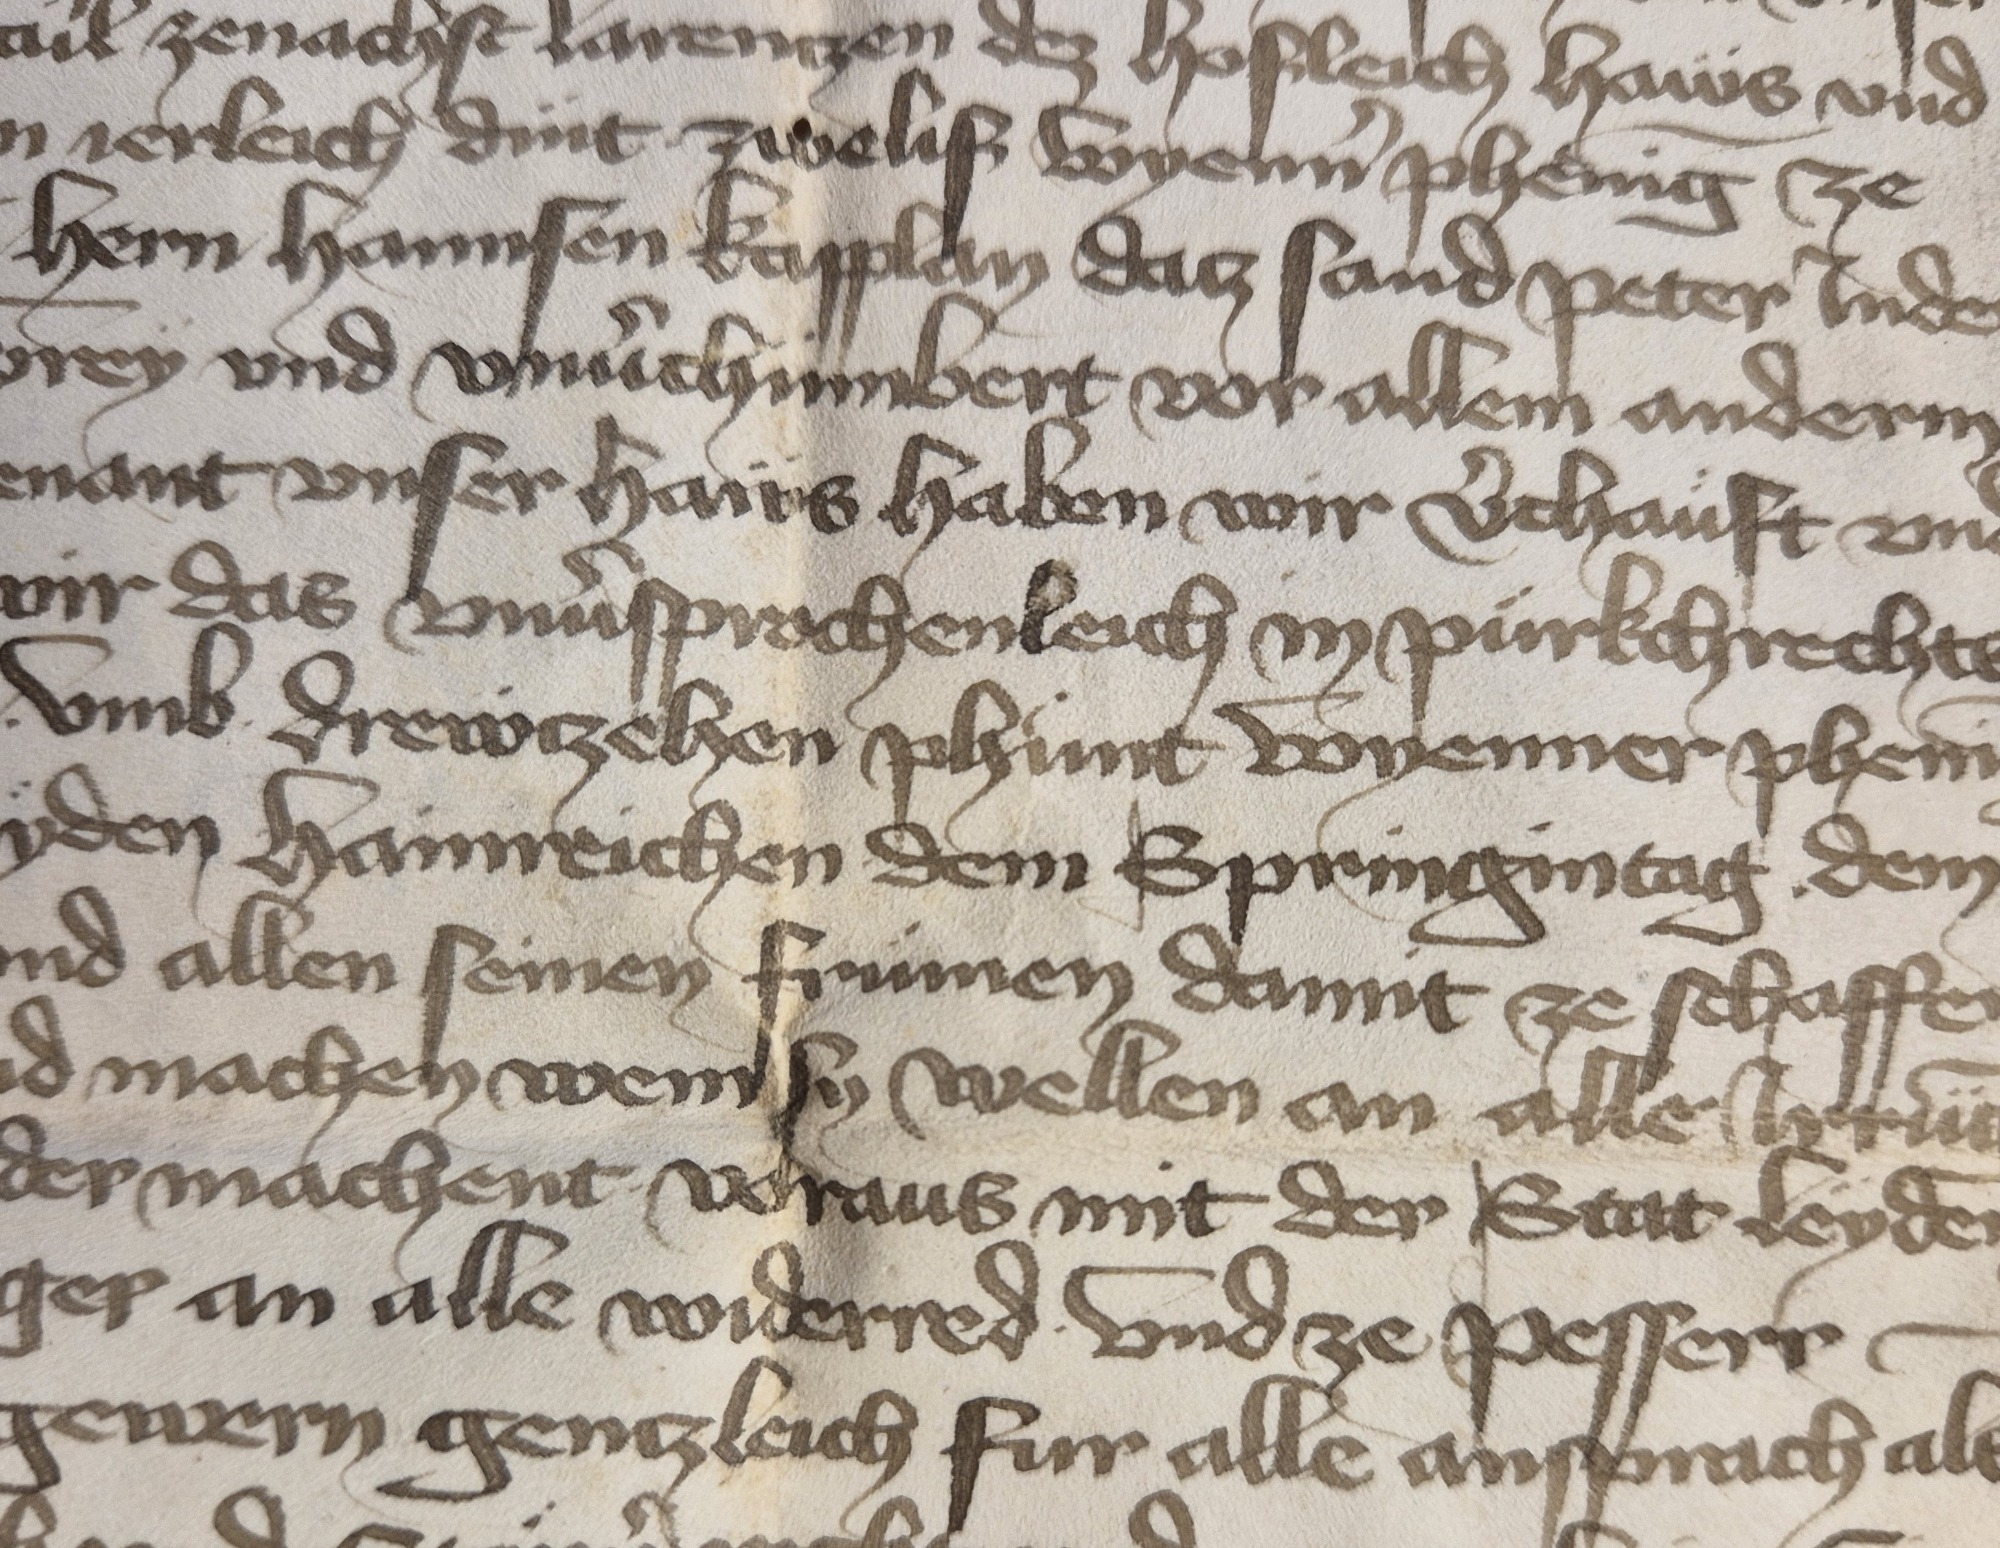 zenachst larenczen dez hofsleich haẅs vnd
n ierleich dint zwelif wyenn' phenig ze
hern hannsen kapplan dacz sand peter Inder
vnd vnu'chümbert vor allem anderm
enant vnser haẅs haben wir v'chauft vnd
wir das vnu'sprochenleich in purkchrechts
vmb drewczehen phunt wyenner pheni
yden hainreichen dem Springintag dem
vnd allen seinen frümen damit ze schaffen
nd machen wem sy wellen an alle
der machent voraus mit der Stat leyden
ger an alle widerred vnd ze pesserr
gewern genczleich fur alle ansprach als